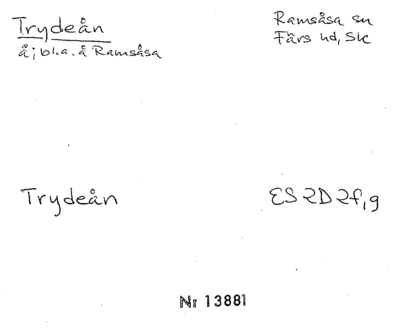 Trydeån
å; bl.a. å Ramsåsa
Ramsåsa sn
Färs hd, Sk
Trydeån
ES 2D 2f,g
Nr 13881